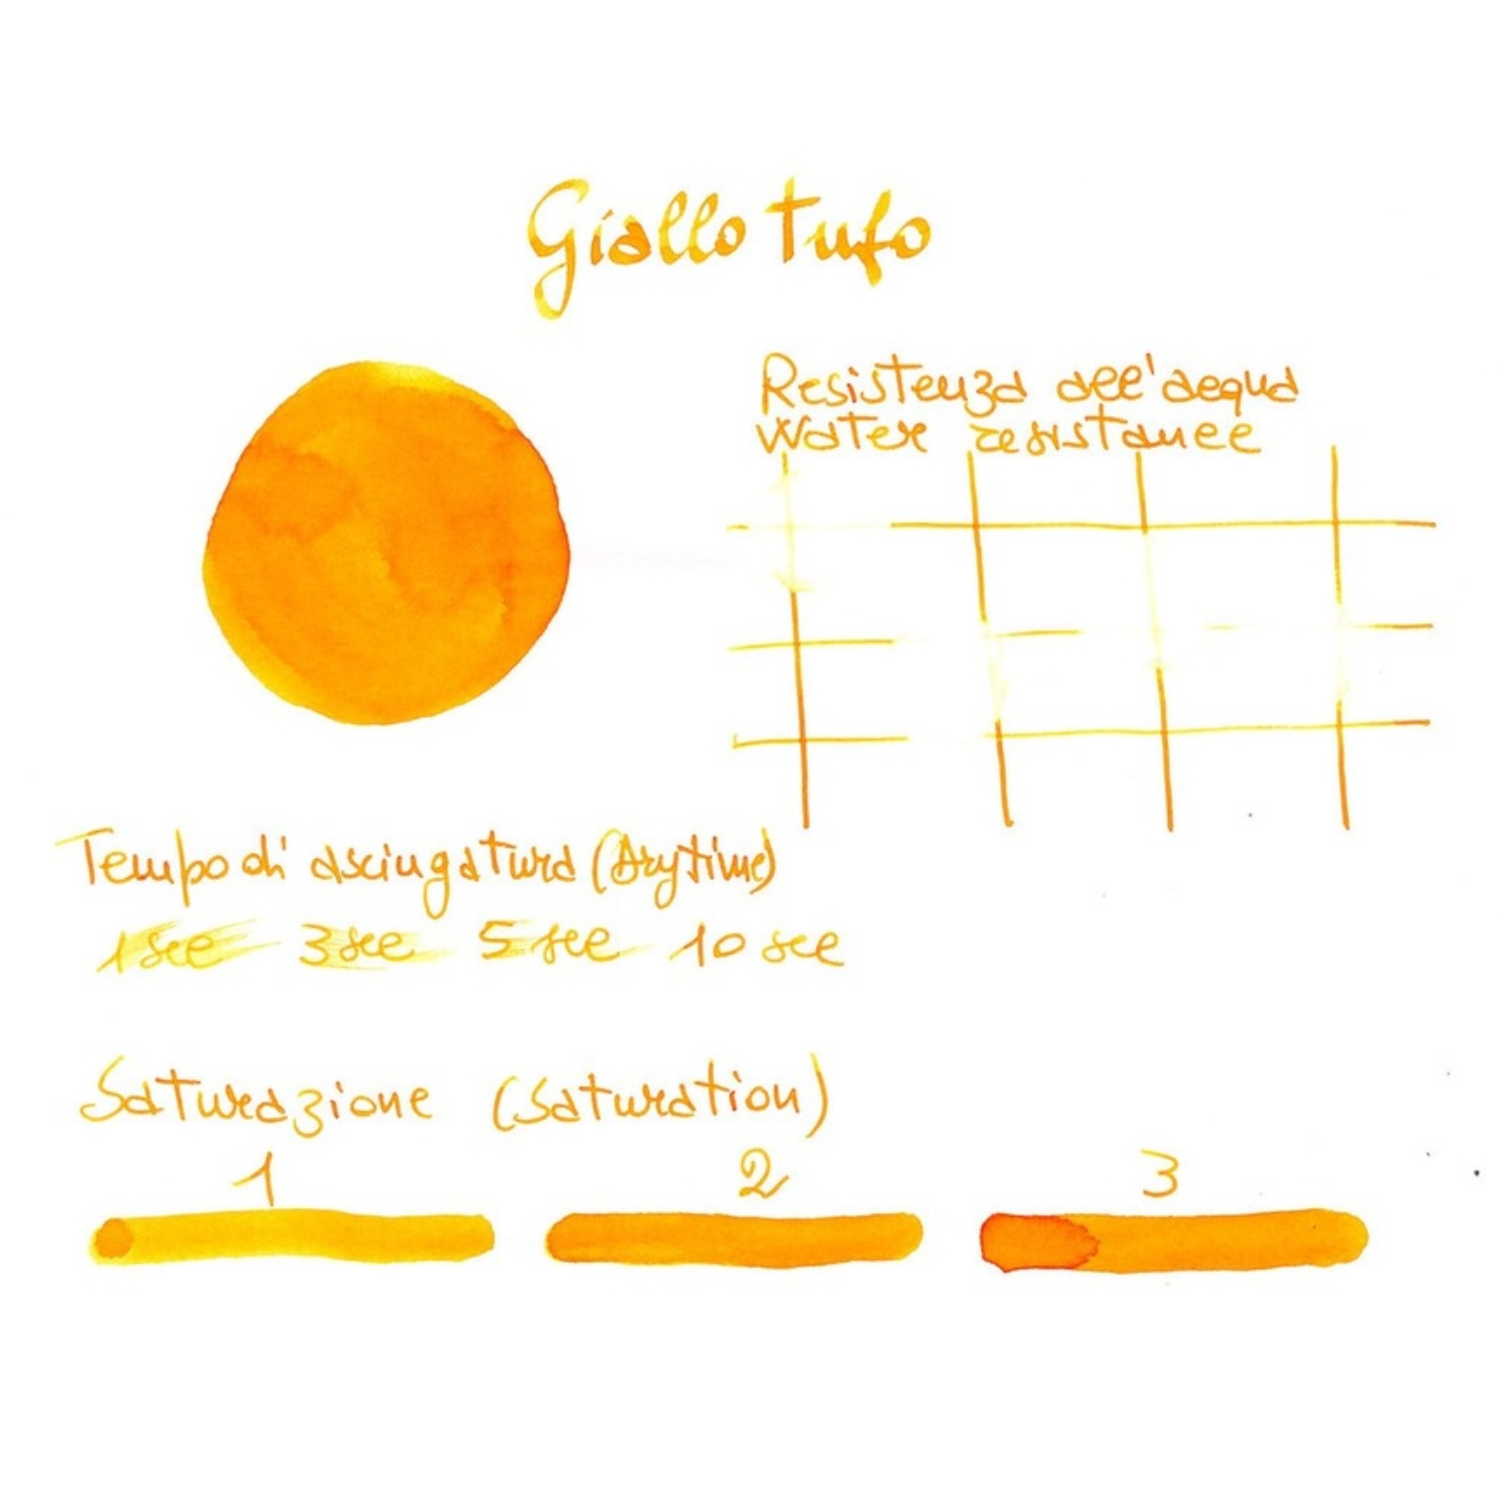 Giallo tufo
Resistenza all'acqua
Water resistance
Tempo di asciugatura (Drytime)
1 sec 3 sec 5 sec 10 sec
Saturazione (Saturation)
1 2 3